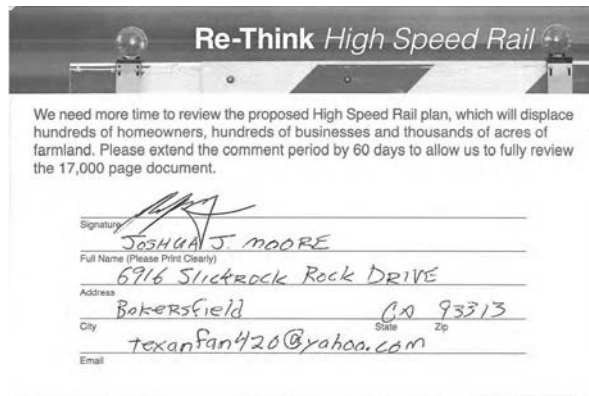 Re-Think High Speed Rail
We need more time to review the proposed High Speed Rail plan, which will displace
hundreds of homeowners, hundreds of businesses and thousands of acres of
farmland. Please extend the comment period by 60 days to allow us to fully review
the 17,000 page document.
Signature
JOSHUA J. MOORE
Full Name (Please Print Clearly)
6916 Slickrock Rock DRIVE
Address
Bakersfield CA 93313
City State Zip
texanfan420@yahoo.com
Email